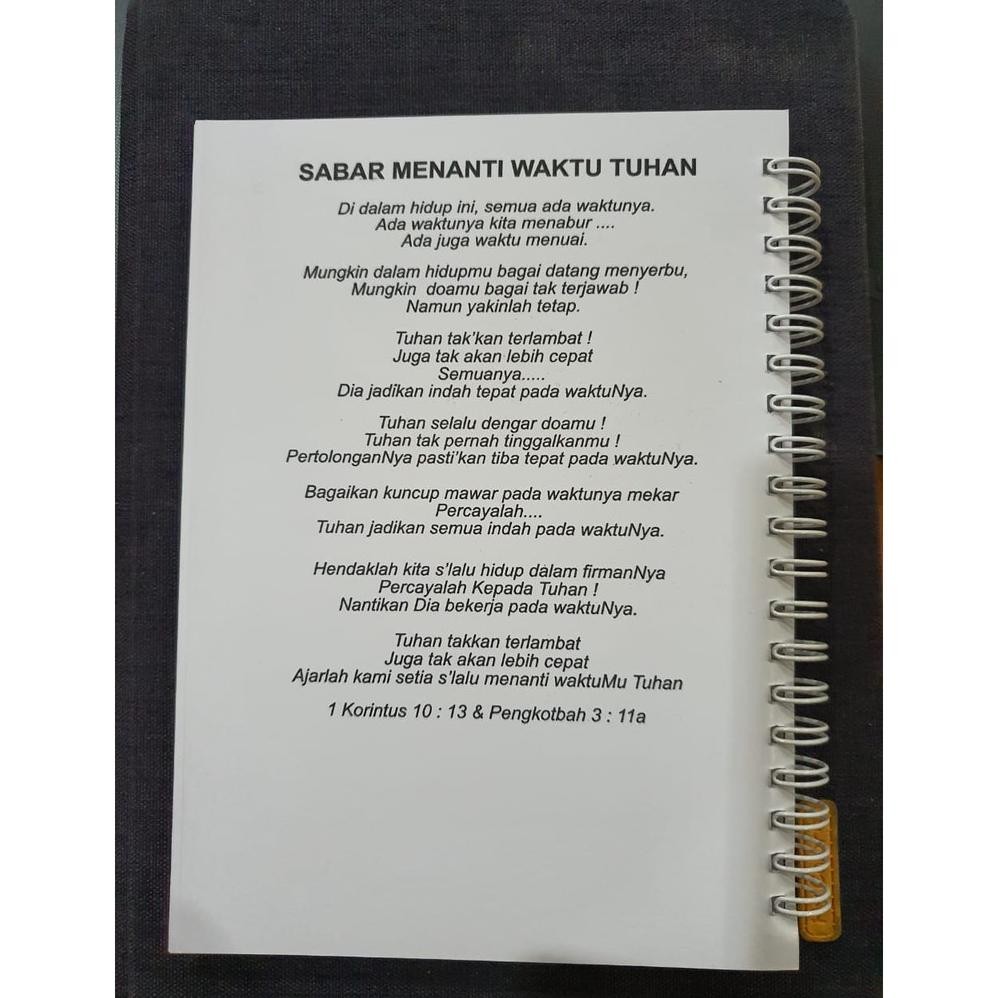 SABAR MENANTI WAKTU TUHAN
Di dalam hidup ini, semua ada waktunya.
Ada waktunya kita menabur ....
Ada juga waktu menuai.
Mungkin dalam hidupmu bagai datang menyerbu,
Mungkin doamu bagai tak terjawab !
Namun yakinlah tetap.
Tuhan tak'kan terlambat !
Juga tak akan lebih cepat
Semuanya.....
Dia jadikan indah tepat pada waktuNya.
Tuhan selalu dengar doamu !
Tuhan tak pernah tinggalkanmu !
PertolonganNya pasti'kan tiba tepat pada waktuNya.
Bagaikan kuncup mawar pada waktunya mekar
Percayalah....
Tuhan jadikan semua indah pada waktuNya.
Hendaklah kita s'lalu hidup dalam firmanNya
Percayalah Kepada Tuhan !
Nantikan Dia bekerja pada waktuNya.
Tuhan takkan terlambat
Juga tak akan lebih cepat
Ajarlah kami setia s'lalu menanti waktuMu Tuhan
1 Korintus 10 : 13 & Pengkotbah 3 : 11a